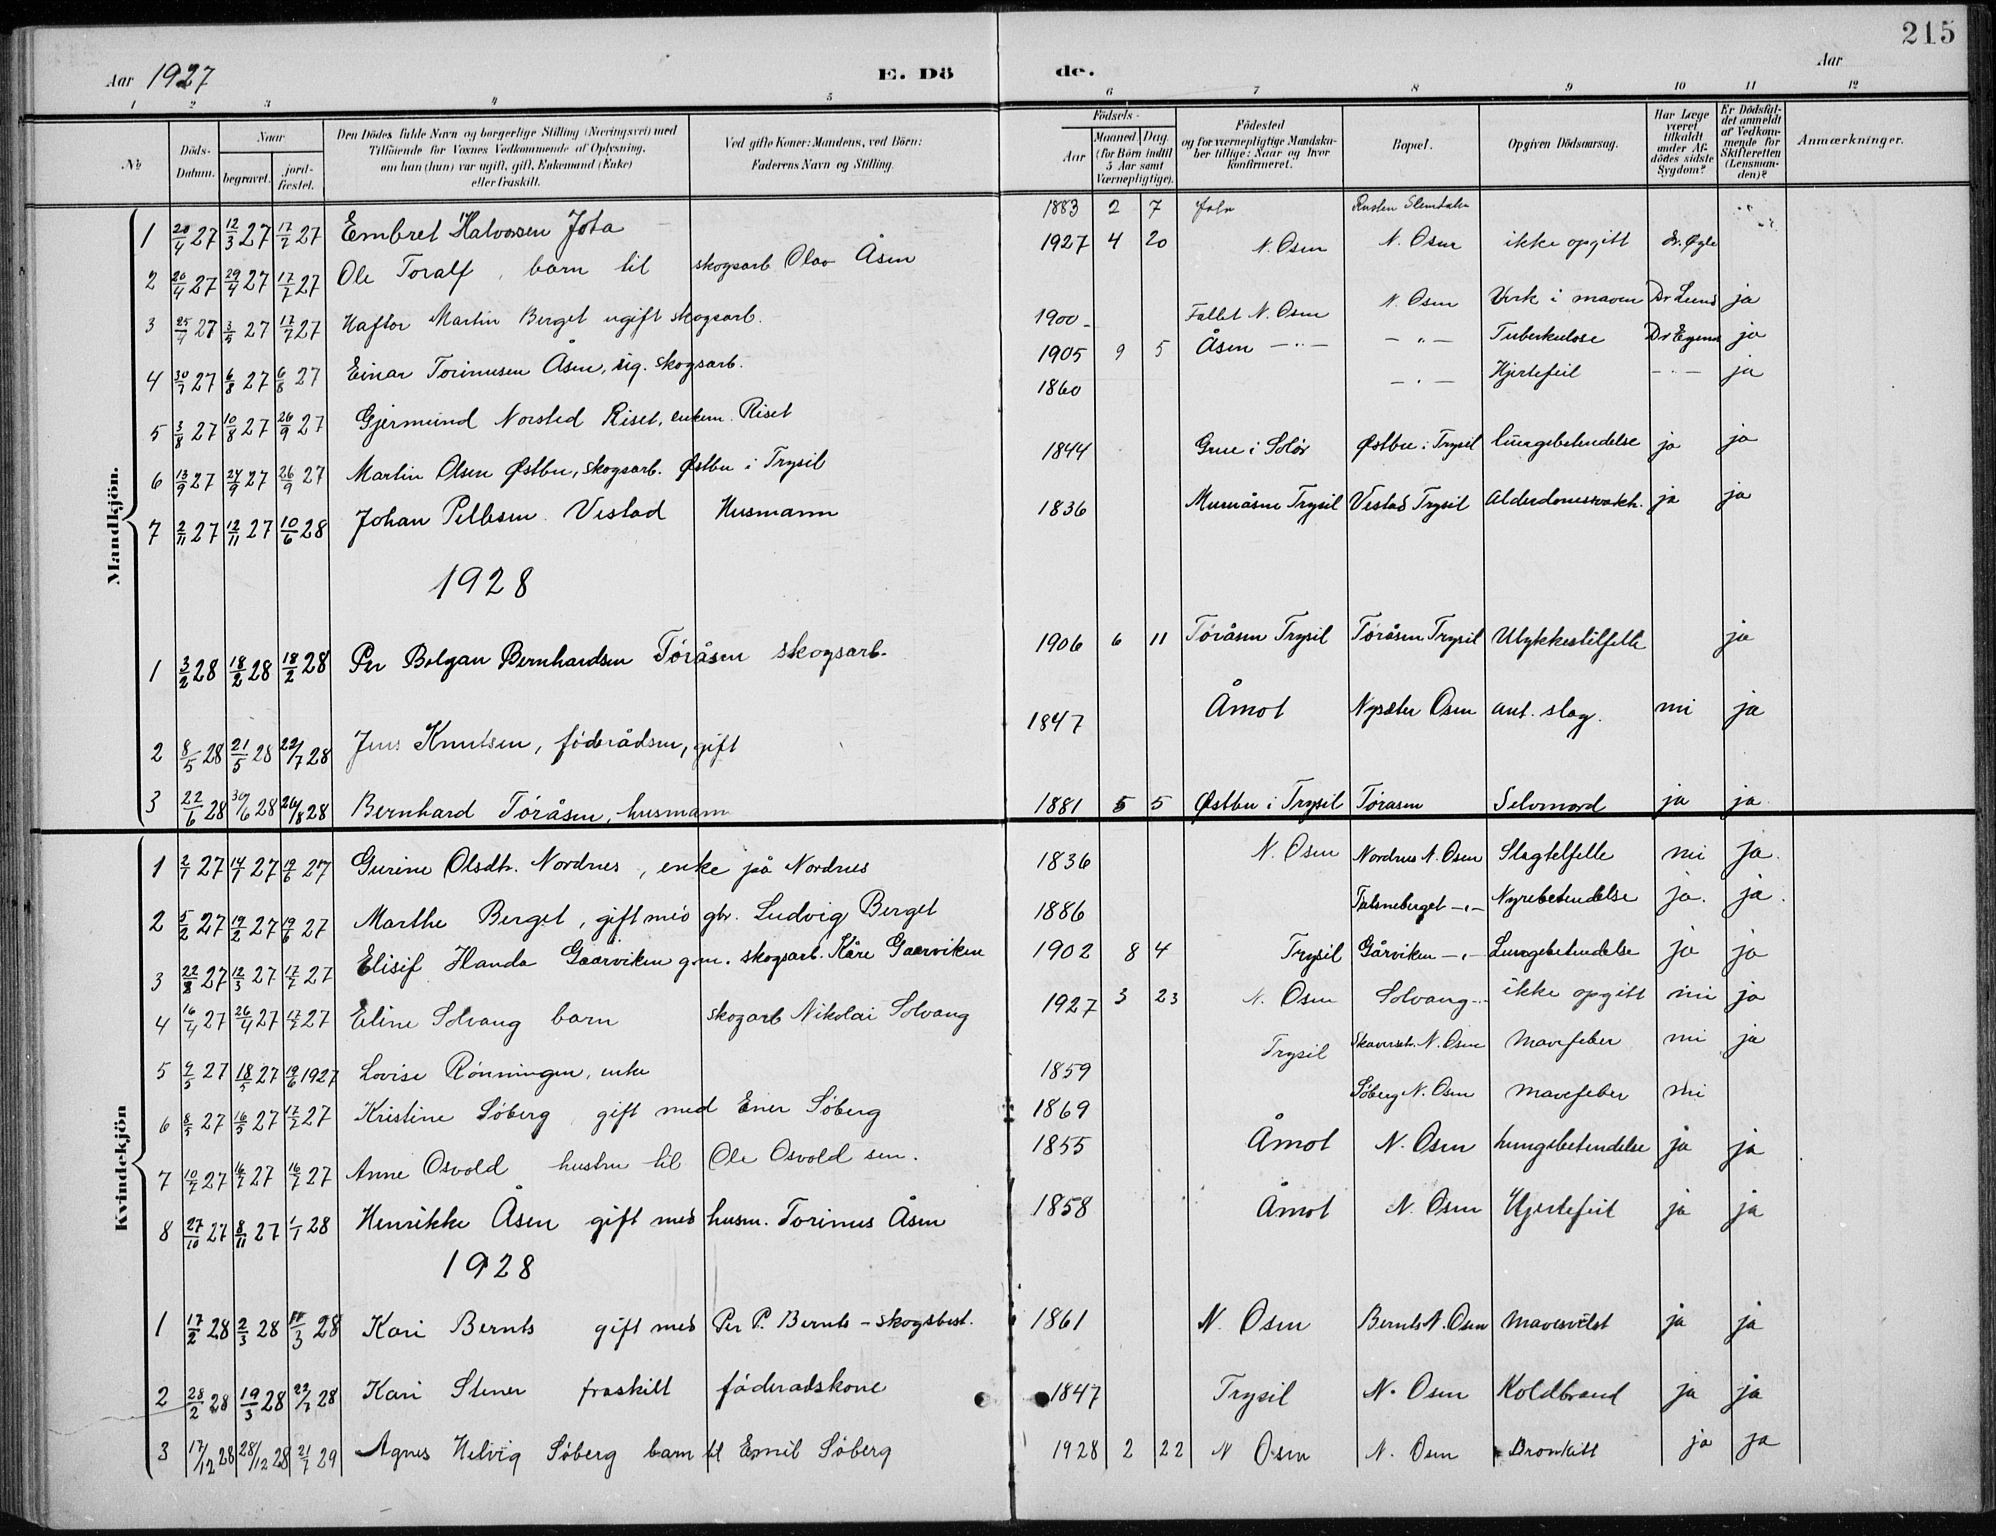 215
Aar 1927 E. Dö de. Aar
1 2 3 4 5 6 7 8 9 10 11 12
№ Döds-Datum. Naar begravet. jord-fæstet. Den Dödes fulde Navn og borgerlige Stilling (Næringsvei) med Tilföiende for Voxnes Vedkommende af Oplysning, om han (hun) var ugift, gift, Enkemand (Enke) eller fraskilt. Ved gifte Koner: Mandens, ved Börn: Faderens Navn og Stilling. Födsels- Aar Maaned Dag. (for Börn indtil 5 Aar samt Værnepligtige). Födested og for værnepligtige Mandskaber tillige: Naar og hvor konfirmeret. Bopæl. Opgiven Dödsaarsag. Har Læge været tilkaldt under Afdödes sidste Sygdom? Er Dödsfaldet anmeldt af Vedkommende for Skifteretten (Lensmanden)? Anmærkninger.
Mandkjön.
1 20/4 27 12/3 27 17/7 27 Embret Halvorsen Jota 1883 2 7
2 20/4 27 29/4 27 17/7 27 Ole Toralf, barn til skogsarb Olav Åsen 1927 4 20 N. Osen N. Osen ikke opgitt
3 25/4 27 3/5 27 17/7 27 Haftor Martin Berget ugift skogsarb. 1900 Fallet N. Osen N. Osen Verk i maven Dr Lund ja
4 30/7 27 6/8 27 6/8 27 Einar Torinusen Åsen, ug. skogsarb. 1905 9 5 Åsen -"- -"- Tuberkulose ja
5 3/8 27 10/8 27 26/9 27 Gjermund Norsted Riset, enkem. Riset 1860 -"- Hjertefeil -"- ja
6 13/9 27 24/9 27 26/9 27 Martin Olsen Østbu, skogsarb. Østbu i Trysil 1844 Grue i Solør Østbu i Trysil lungebetendelse ja ja
7 2/11 27 12/11 27 10/6 28 Johan Pettersen Vestad Husmann 1836 Trysil Vestad Trysil ja ja
1928
1 3/2 28 18/2 28 18/2 28 Per Bolgan Bernhardsen Töråsen skogsarb. 1906 6 11 Töråsen Trysil Töråsen Trysil Ulykkestilfelle ja
2 8/5 28 21/5 28 22/7 28 Jens Knutsen, föderådsm, gift 1847 Åmot Nysæter Osen ant. slag. nei ja
3 22/6 28 30/6 28 26/8 28 Bernhard Töråsen, husmann 1881 5 5 Østbu i Trysil Töråsen Selvmord ja ja
Kvindekjön
1 2/1 27 14/1 27 19/6 27 Gurine Olsdtr. Nordnes, enke på Nordnes 1836 N. Osen Nordnes N. Osen Slagtilfelle nei ja.
2 5/2 27 19/2 27 19/6 27 Marthe Berget, gift med gbr. Ludvig Berget 1886 -"- Nyrebetendelse ja. ja.
3 22/8 27 12/3 27 17/7 27 Elisif Handa Gaarviken g.m. skogsarb. Kåre Gaarviken 1902 8 4 Trysil Gårviken -"- Lungebetendelse ja ja
4 16/4 27 26/4 27 17/7 27 Eline Solvang barn skogarb Nikolai Solvang 1927 3 23 N. Osen Solvang -"- ikke opgitt nei ja
5 9/5 27 18/5 27 19/6 1927 Lovise Rönningen, enke 1859 Trysil N. Osen Mavefeber nei ja
6 8/5 27 16/5 27 17/7 27 Kristine Söberg gift med Ener Söberg 1869 Söberg N. Osen mavefeber nei
7 10/7 27 16/7 27 16/7 27 Anne Osvold hustru til Ole Osvold sen. 1855 Åmot N. Osen lungebetendelse ja ja
8 27/10 27 8/11 27 1/1 28 Henrikke Åsen gift med husm. Torinus Åsen 1858 Åmot N. Osen Hjertefeil ja ja
1928
1 17/2 28 2/3 28 11/3 28 Kari Bernts gift med Per P. Bernts - skogsbest. 1861 N. Osen Bernts N. Osen Mavesvulst ja ja
2 28/2 28 19/3 28 22/7 28 Kari Stener fraskilt föderadskone 1847 Trysil N. Osen Koldbrand ja ja
3 17/12 28 28/12 28 21/7 29 Agnes Helvig Söberg barn til Emil Söberg 1928 2 22 N Osen N. Osen Bronkitt ja ja